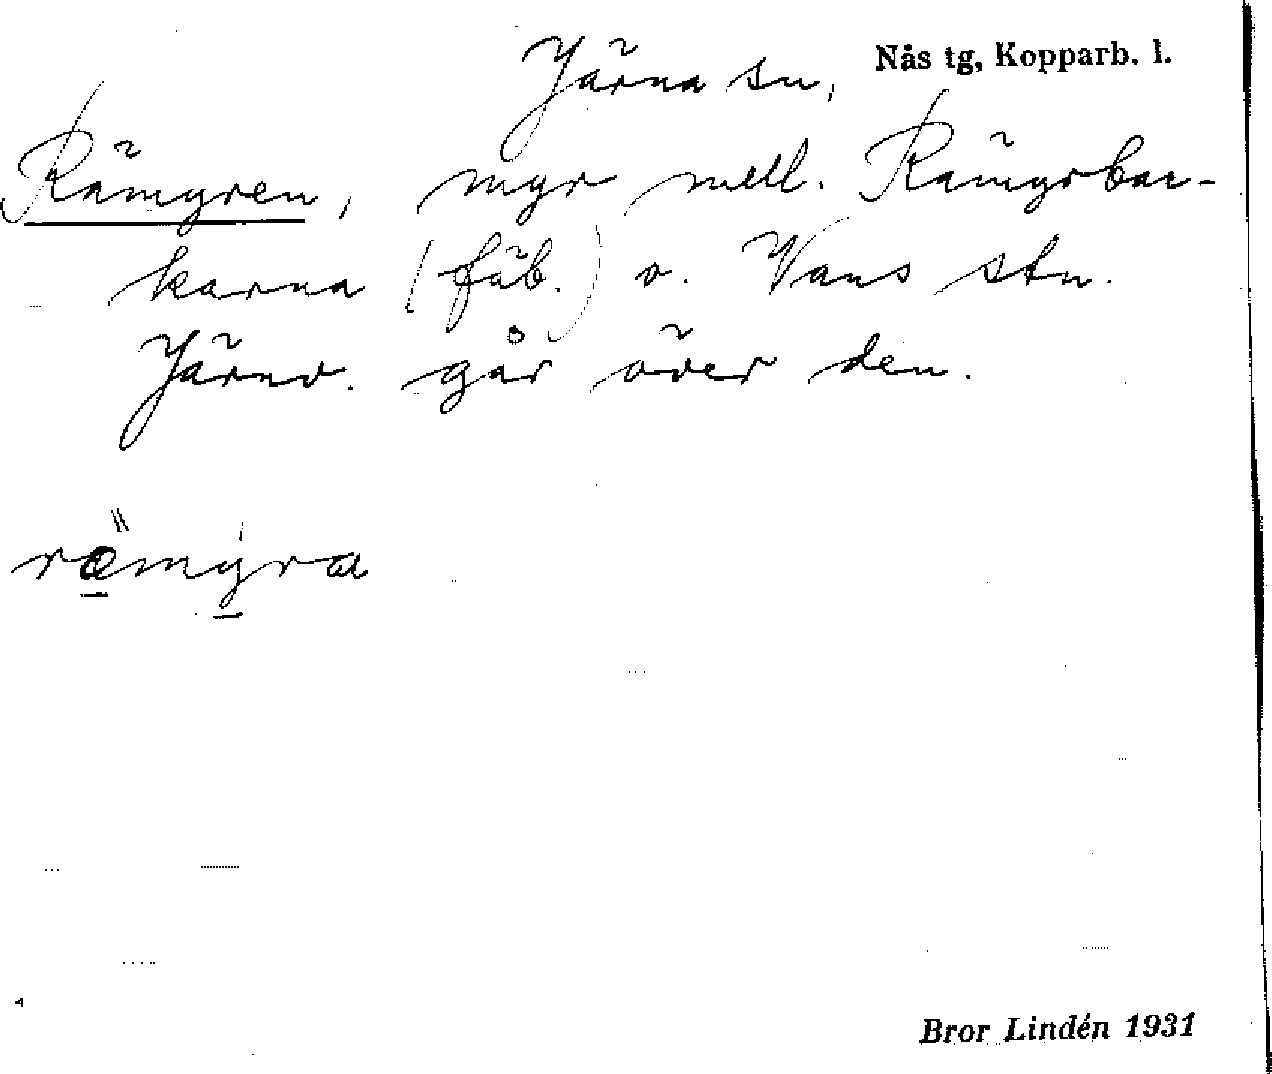 Järna sn, Nås tg, Kopparb. l.
Rämyren, myr mell. Rämyrbac-
karna (fäb.) o. Vans stn.
Järnv. går över den.
römyra
Bror Lindén 1931